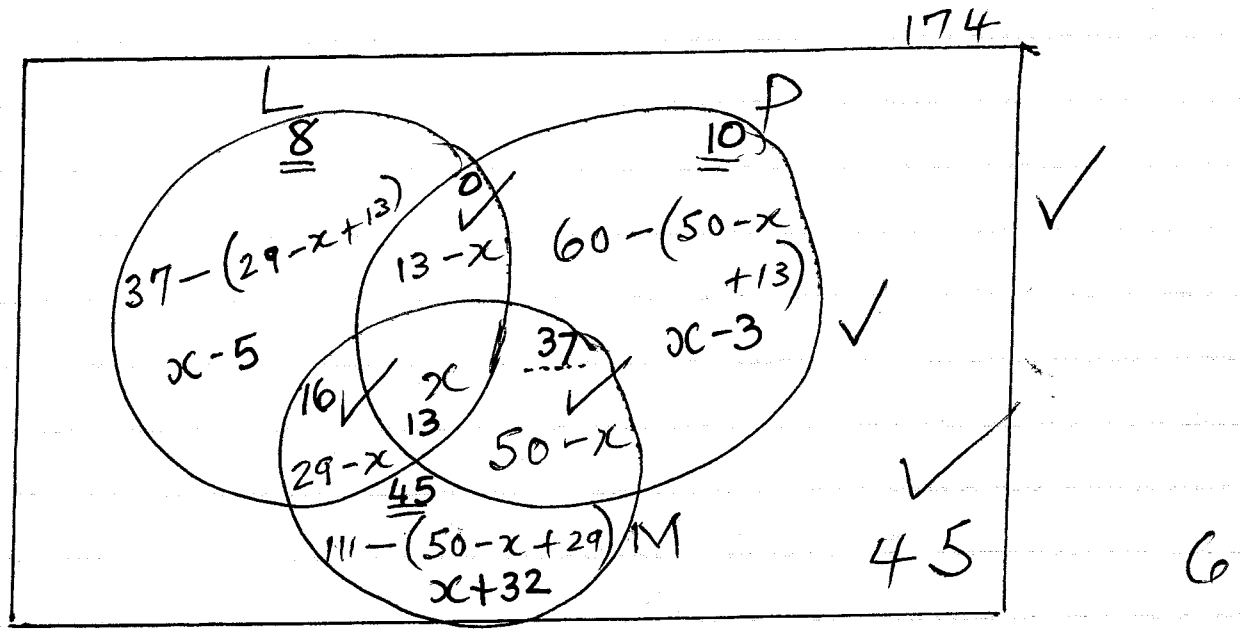 174
L
P
8
10
0
37-(29-x+13)
13-x
60-(50-x
+13)
x-5
37
x-3
16
x
13
50-x
29-x
45
111-(50-x+29)
M
x+32
45
6